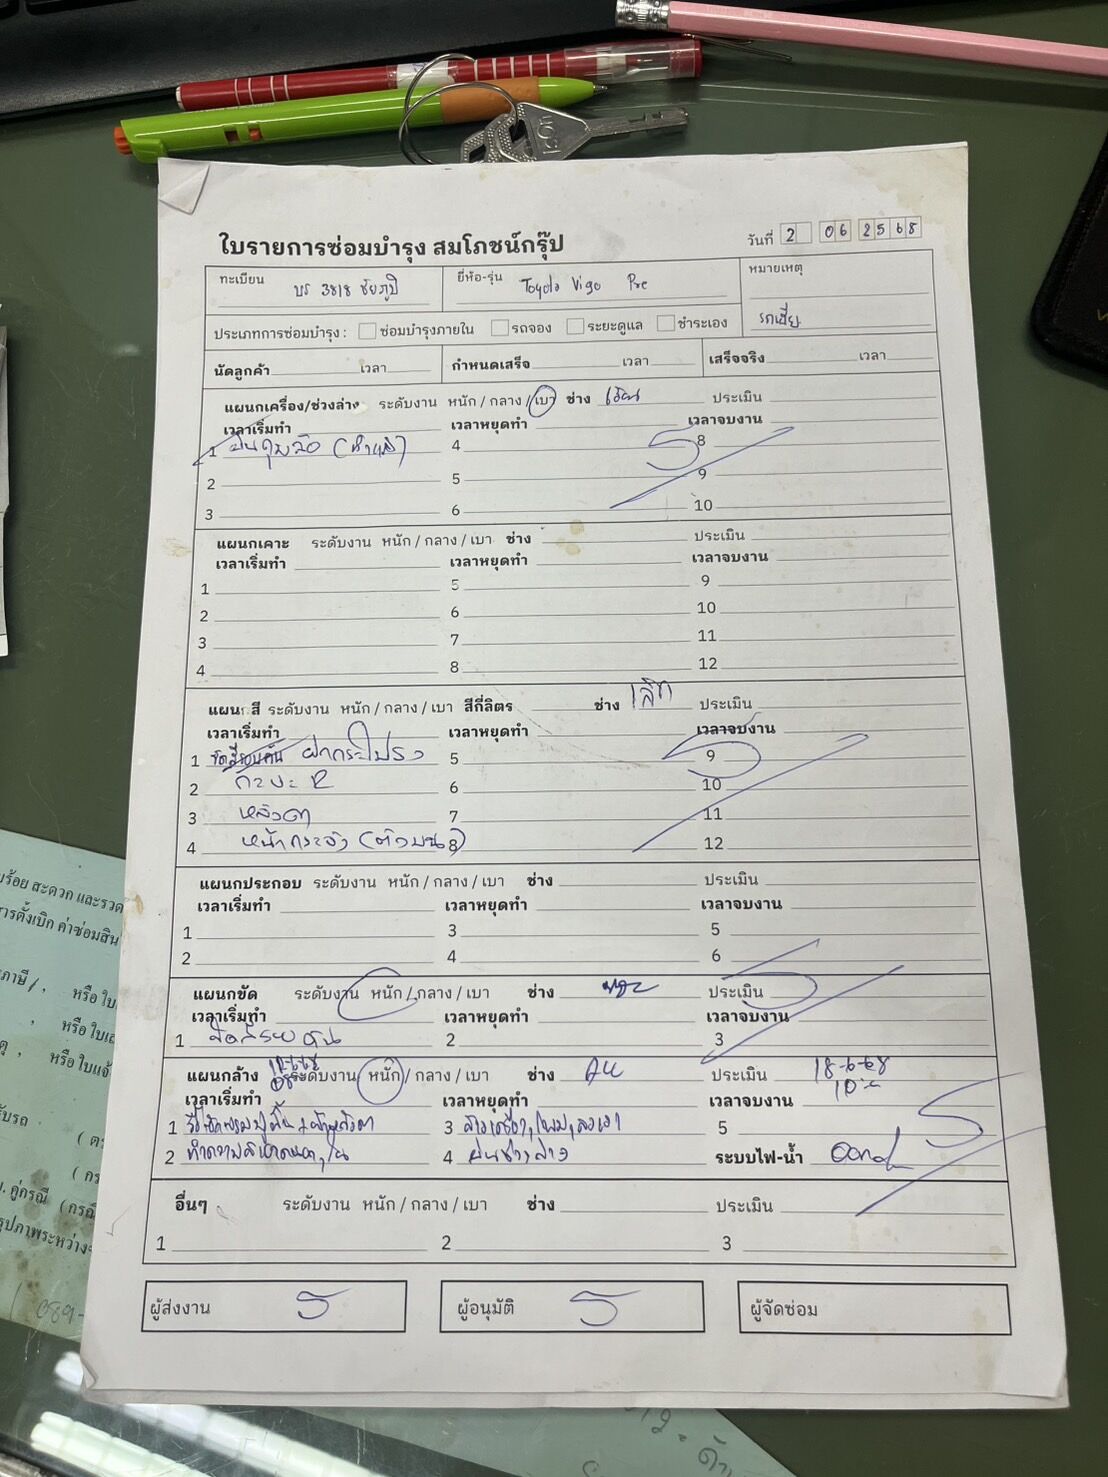 ใบรายการซ่อมบำรุง สมโภชน์กรุ๊ป
วันที่ 2 06 2568
ทะเบียน บร 3818 ชัยภูมิ ยี่ห้อ-รุ่น Toyota Vigo Pre หมายเหตุ
ประเภทการซ่อมบำรุง : ซ่อมบำรุงภายใน รถจอง ระยะดูแล ชำระเอง
นัดลูกค้า เวลา กำหนดเสร็จ เวลา เสร็จจริง เวลา
แผนกเครื่อง/ช่วงล่าง ระดับงาน หนัก / กลาง / เบา ช่าง ประเมิน
เวลาเริ่มทำ เวลาหยุดทำ เวลาจบงาน
1 4 8
2 5 9
3 6 10
แผนกเคาะ ระดับงาน หนัก / กลาง / เบา ช่าง ประเมิน
เวลาเริ่มทำ เวลาหยุดทำ เวลาจบงาน
1 5 9
2 6 10
3 7 11
4 8 12
แผนก สี ระดับงาน หนัก / กลาง / เบา สีกี่ลิตร ช่าง ประเมิน
เวลาเริ่มทำ เวลาหยุดทำ เวลาจบงาน
1 ขัดสีรอบคัน ฝากระโปรง 5 9
2 กะบะ R 6 10
3 หลังคา 7 11
4 หน้ากระจัง (ตัวบน) 8 12
แผนกประกอบ ระดับงาน หนัก / กลาง / เบา ช่าง ประเมิน
เวลาเริ่มทำ เวลาหยุดทำ เวลาจบงาน
1 3 5
2 4 6
แผนกขัด ระดับงาน หนัก / กลาง / เบา ช่าง ประเมิน
เวลาเริ่มทำ เวลาหยุดทำ เวลาจบงาน
1 ขัดสีรอบคัน 2 3
แผนกล้าง ระดับงาน หนัก / กลาง / เบา ช่าง ประเมิน 18-6-68
เวลาเริ่มทำ เวลาหยุดทำ เวลาจบงาน
1 3 5
2 4 ระบบไฟ-น้ำ
อื่นๆ ระดับงาน หนัก / กลาง / เบา ช่าง ประเมิน
1 2 3
ผู้ส่งงาน ผู้อนุมัติ ผู้จัดซ่อม